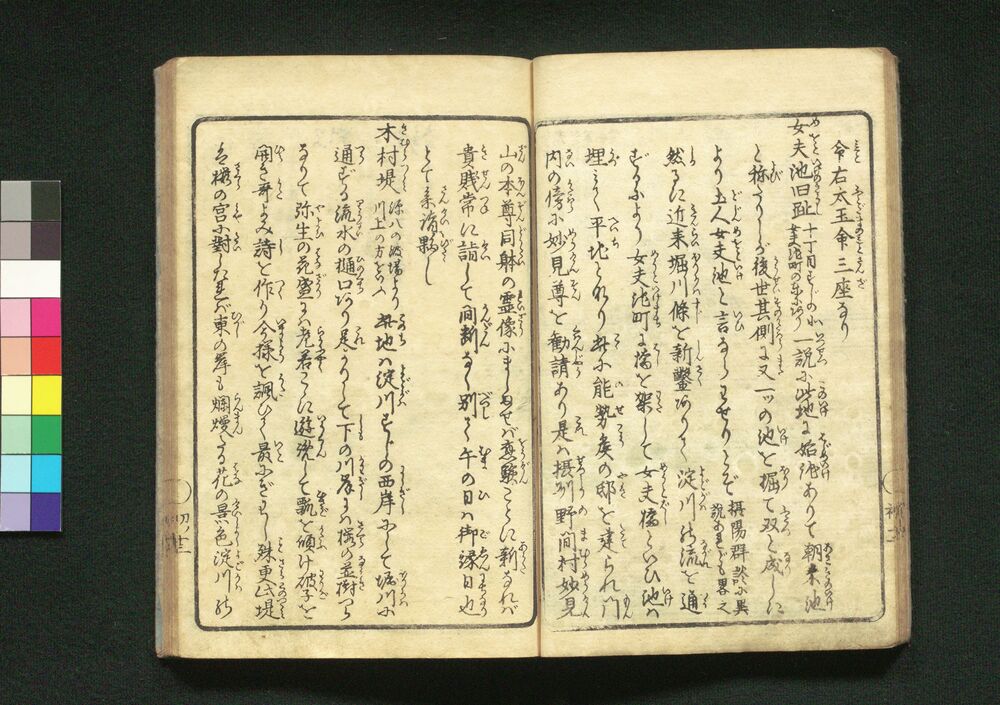 令右太玉命三座なり
女夫池旧趾 十丁目すじの北女夫池町の東にあり 一説に此地に始池ありて朝来池
と称せしが後世其側に又一ッの池を堀て双と成しに
より土人女夫池と言ならはせりとぞ 摂陽群談に異説あれども畧之
然るに近来堀川條を新鑿ありて淀川の流を通
ずるにより女夫池町に橋を架して女夫橋といひ池は
埋みて平地となれり此に能勢矦の邸を建られ門
内の傍に妙見尊を勧請あり是は摂州野間村妙見
山の本尊同躰の霊像にましませば霊験ことに新なれば
貴賎常に詣して間断なく別て午の日は御縁日也
とて参詣夥し
木村堤 源八の渡場より川上の方をいふ 此地は淀川すじの西岸にて堀川に
通ずる流水の樋口あり是よりして下の川岸には桜の並樹つら
なりて弥生の花盛には老若こゝに遊宴して瓢を傾け破子を
開き哥よみ詩を作り今様を諷ひて最にぎはし殊更此堤
は桜の宮に對したれば東の岸も爛熳たる花の景色淀川の